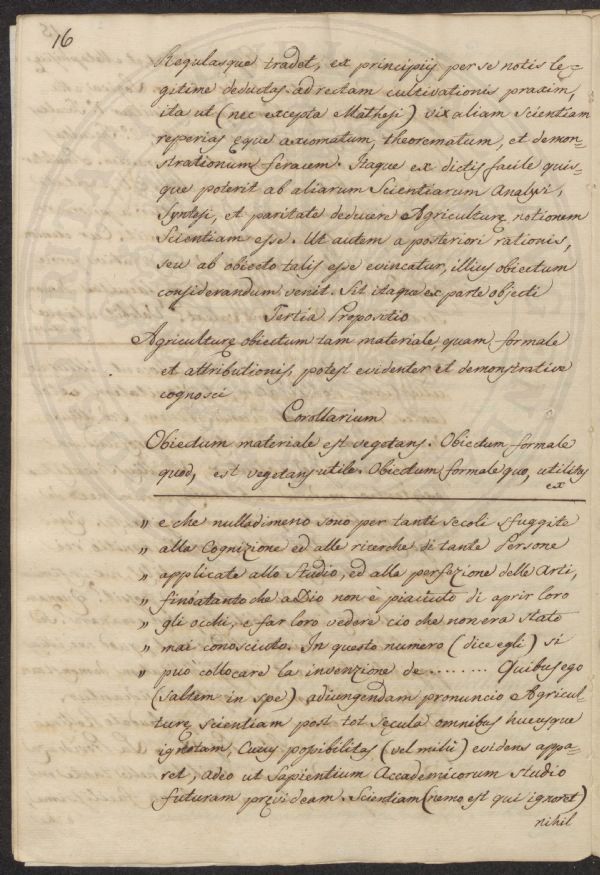 16
Regulasque tradet, ex principijs per se notis le=
gitime deductas ad rectam cultivationis praxim,
ita ut (nec excepta Mathesi) vix aliam Scientiam
reperias ęque axiomatum, theorematum, et demon=
strationum feracem. Itaque ex dictis facile quis=
que poterit ab aliarum Scientiarum Analysi,
Syntesi, et paritate deducere Agriculturę notionem
Scientiam esse. Ut autem a posteriori rationis,
seu ab obiecto talis esse evincatur, illius obiectum
considerandum venit. Sit itaque ex parte objecti
Tertia Propositio
Agriculturę obiectum tam materiale, quam formale
et attributionis, potest evidenter et demonstrative
cognosci
Corollarium
Obiectum materiale est vegetans. Obiectum formale
quod, est vegetans utile. Obiectum formale quo, utilitas
ex
„ e che nulladimeno sono per tanti secoli sfuggite
„ alla Cognizione ed alle ricerche di tante Persone
„ applicate allo Studio, ed alla perfezione delle Arti,
„ finoatanto che a Dio non è piaciuto di aprir loro
„ gli occhi, e far loro vedere ciò che non era stato
„ mai conosciuto. In questo numero (dice egli) si
„ può collocare la invenzione de ........ Quibus ego
(saltem in spe) adiungendam pronuncio Agricul=
turę scientiam post tot sęcula omnibus hucusque
ignotam, Cuius possibilitas (vel mihi) evidens appa=
ret, adeo ut Sapientium Accademicorum studio
futuram pręvideam. Scientiam (nemo est qui ignoret)
nihil